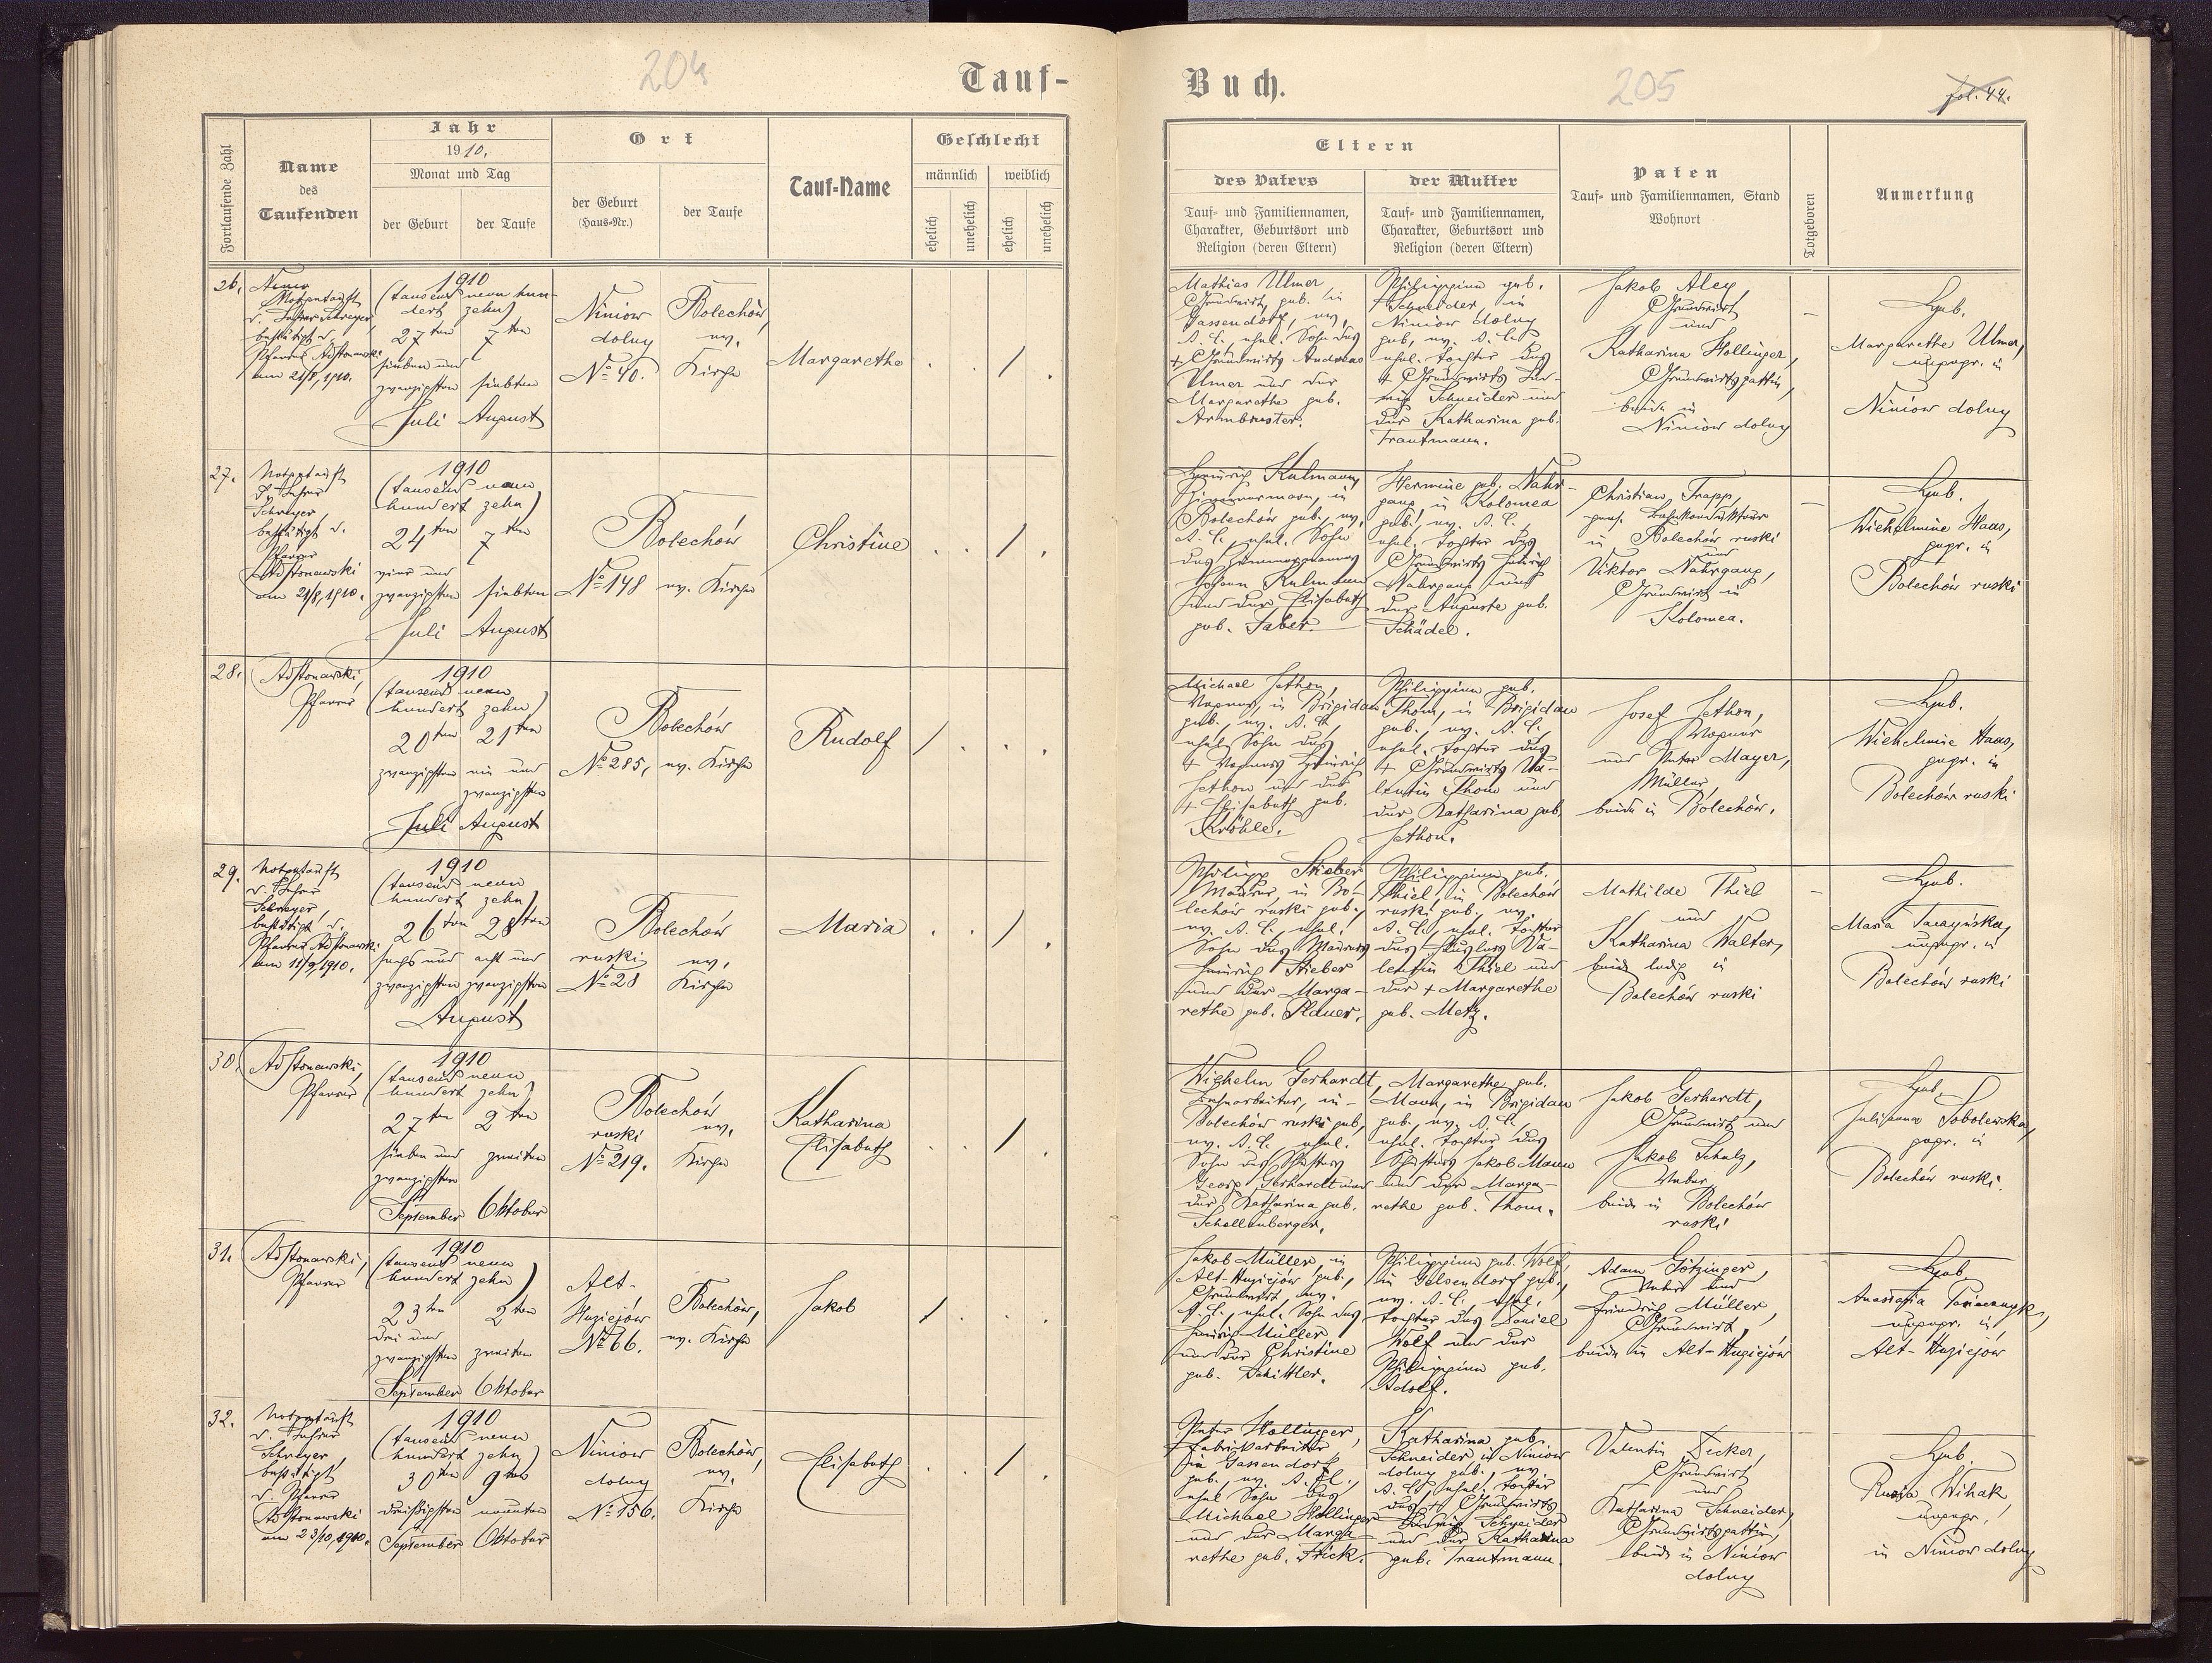 204
Tauf-
Fortlaufende Zahl
Name
des
Taufenden
Jahr
1910.
Monat und Tag
der Geburt
der Taufe
Ort
der Geburt
(Haus-Nr.)
der Taufe
Tauf-Name
Geschlecht
männlich
weiblich
ehelich
unehelich
ehelich
unehelich
26.
Notgetauft
v. Lehrer Schreyer,
bestätigt v.
Pfarrer Adstonawski
am 21/8, 1910.
1910
(tausend neun hun-
dert zehn)
27ten 7ten
sieben und
zwanzigsten siebten
Juli August
Niniow
dolny
No 40.
Bolechów,
ev.
Kirche
Margarethe
27.
Notgetauft
d. Lehrer
Schreyer,
bestätigt v.
Pfarrer
Adstonawski
am 21/8, 1910.
1910
(tausend neun
hundert zehn)
24ten 7ten
vier und
zwanzigsten siebten
Juli August
Bolechów
No 148 ev. Kirche
Christine
28.
Adstonawski,
Pfarrer
1910
(tausend neun
hundert zehn)
20ten 21ten
zwanzigsten ein und
zwanzigsten
Juli August
Bolechów
No 285, ev. Kirche
Rudolf
29.
Notgetauft
v. Lehrer
Schreyer,
bestätigt v.
Pfarrer Adstonawski
am 11/9, 1910.
1910
(tausend neun
hundert zehn)
26ten 28ten
sechs und acht und
zwanzigsten zwanzigsten
August
Bolechów
ruski ev.
No 28 Kirche
Maria
30.
Adstonawski,
Pfarrer
1910
(tausend neun
hundert zehn)
27ten 2ten
sieben und zweiten
zwanzigsten
September Oktober
Bolechów
ruski ev.
No 219. Kirche
Katharina
Elisabeth
31.
Adstonawski,
Pfarrer
1910
(tausend neun
hundert zehn)
23ten 2ten
drei und
zwanzigsten zweiten
September Oktober
Alt-
Huziejów
No 66.
Bolechów,
ev. Kirche
Jakob
32.
Notgetauft
v. Lehrer
Schreyer,
bestätigt
v. Pfarrer
Adstonawski
am 23/10, 1910.
1910
(tausend neun
hundert zehn)
30ten 9ten
dreißigsten neunten
September Oktober
Niniow
dolny
No 156.
Bolechów,
ev.
Kirche
Elisabeth
Buch.
205
fol. 44.
Eltern
des Vaters
Tauf- und Familiennamen,
Charakter, Geburtsort und
Religion (deren Eltern)
der Mutter
Tauf- und Familiennamen,
Charakter, Geburtsort und
Religion (deren Eltern)
Paten
Tauf- und Familiennamen, Stand
Wohnort
Totgeboren
Anmerkung
Mathias Ulmer
Grundwirt, geb. in
Gassendorf, ev.
A. C., ehel. Sohn des
+ Grundwirts Andreas
Ulmer und der
Margarethe geb.
Armbruster.
Philippina geb.
Schneider, in
Niniow dolny
geb., ev. A. C.,
ehel. Tochter des
+ Grundwirts Lud-
wig Schneider und
der Katharina geb.
Trautmann.
Jakob Aley,
Grundwirt
und
Katharina Hollinger,
Grundwirtsgattin,
beide in
Niniow dolny
Heb.
Margarethe Ulmer,
ungepr. in
Niniow dolny
Heinrich Kulmann,
Zimmermann, in
Bolechów geb., ev.
A. C., ehel. Sohn
des Zimmermannes
Johann Kulmann
und der Elisabeth
geb. Faber.
Hermine geb. Nahr-
gang, in Kolomea
geb., ev. A. C.,
ehel. Tochter des
Grundwirts Heinrich
Nahrgang und
der Auguste geb.
Schädel.
Christian Trapp,
pens. Bahnkondukteur
in Bolechów ruski
und
Viktor Nahrgang,
Grundwirt in
Kolomea.
Heb.
Wilhelmine Haas,
gepr. in
Bolechów ruski
Michael Jethon,
Wagner, in Brigidau
geb., ev. A. C.,
ehel. Sohn des
+ Wagners Heinrich
Jethon und der
+ Elisabeth geb.
Kröhle.
Philippina geb.
Thom, in Brigidau
geb., ev. A. C.
ehel. Tochter des
+ Grundwirts Va-
lentin Thom und
der Katharina geb.
Jethon.
Josef Jethon,
Wagner
und Peter Mayer,
Müller
beide in Bolechów.
Heb.
Wilhelmine Haas,
gepr. in
Bolechów ruski
Philipp Stieber
Maurer, in Bo-
lechów ruski geb.,
ev. A. C., ehel.
Sohn des Maurers
Heinrich Stieber
und der Marga-
rethe geb. Plauer.
Philippina geb.
Thiel, in Bolechów
ruski geb., ev.
A. C., ehel. Tochter
des Häuslers Va-
lentin Thiel und
der + Margarethe
geb. Metz.
Mathilde Thiel
und
Katharina Walter,
beide ledig in
Bolechów ruski
Heb.
Maria Tarayńska,
ungepr. in
Bolechów ruski
Wilhelm Gerhardt,
Bahnarbeiter, in
Bolechów ruski geb,
ev. A. C., ehel.
Sohn des Schusters
Georg Gerhardt und
der Katharina geb.
Schellenberger.
Margarethe geb.
Mann, in Brigidau
geb., ev. A. C.,
ehel. Tochter des
Schusters Jakob Mann
und der Marga-
rethe geb. Thom.
Jakob Gerhardt,
Grundwirt und
Jakob Schulz,
Weber
beide in Bolechów
ruski
Heb.
Julianna Sobolewska,
gepr. in
Bolechów ruski.
Jakob Müller, in
Alt-Huziejów geb.,
Grundwirt, ev.
A. C., ehel. Sohn des
Heinrich Müller
und der Christine
geb. Schittler.
Philippina geb. Wolf,
in Gelsendorf geb.,
ev. A. C. ehel.
Tochter des Daniel
Wolf und der
Philippina geb.
Adolf.
Adam Götzinger,
und
Friedrich Müller,
Grundwirt,
beide in Alt-Huziejów
Heb.
Anastasia
ungepr. in
Alt-Huziejów
Peter Hollinger,
Fabriksarbeiter
in Gassendorf
geb., ev. A. C.,
ehel. Sohn des
Michael Hollinger
und der Marga-
rethe geb. Frick.
Katharina geb.
Schneider in Niniow
dolny geb., ev.
A. C., ehel. Tochter
des + Grundwirts
Ludwig Schneider
und der Katharina
geb. Trautmann.
Valentin Decker,
Grundwirt
und
Katharina Schneider,
Grundwirtsgattin,
beide in Niniow
dolny
Heb.
Wihak,
ungepr.
in Niniow dolny